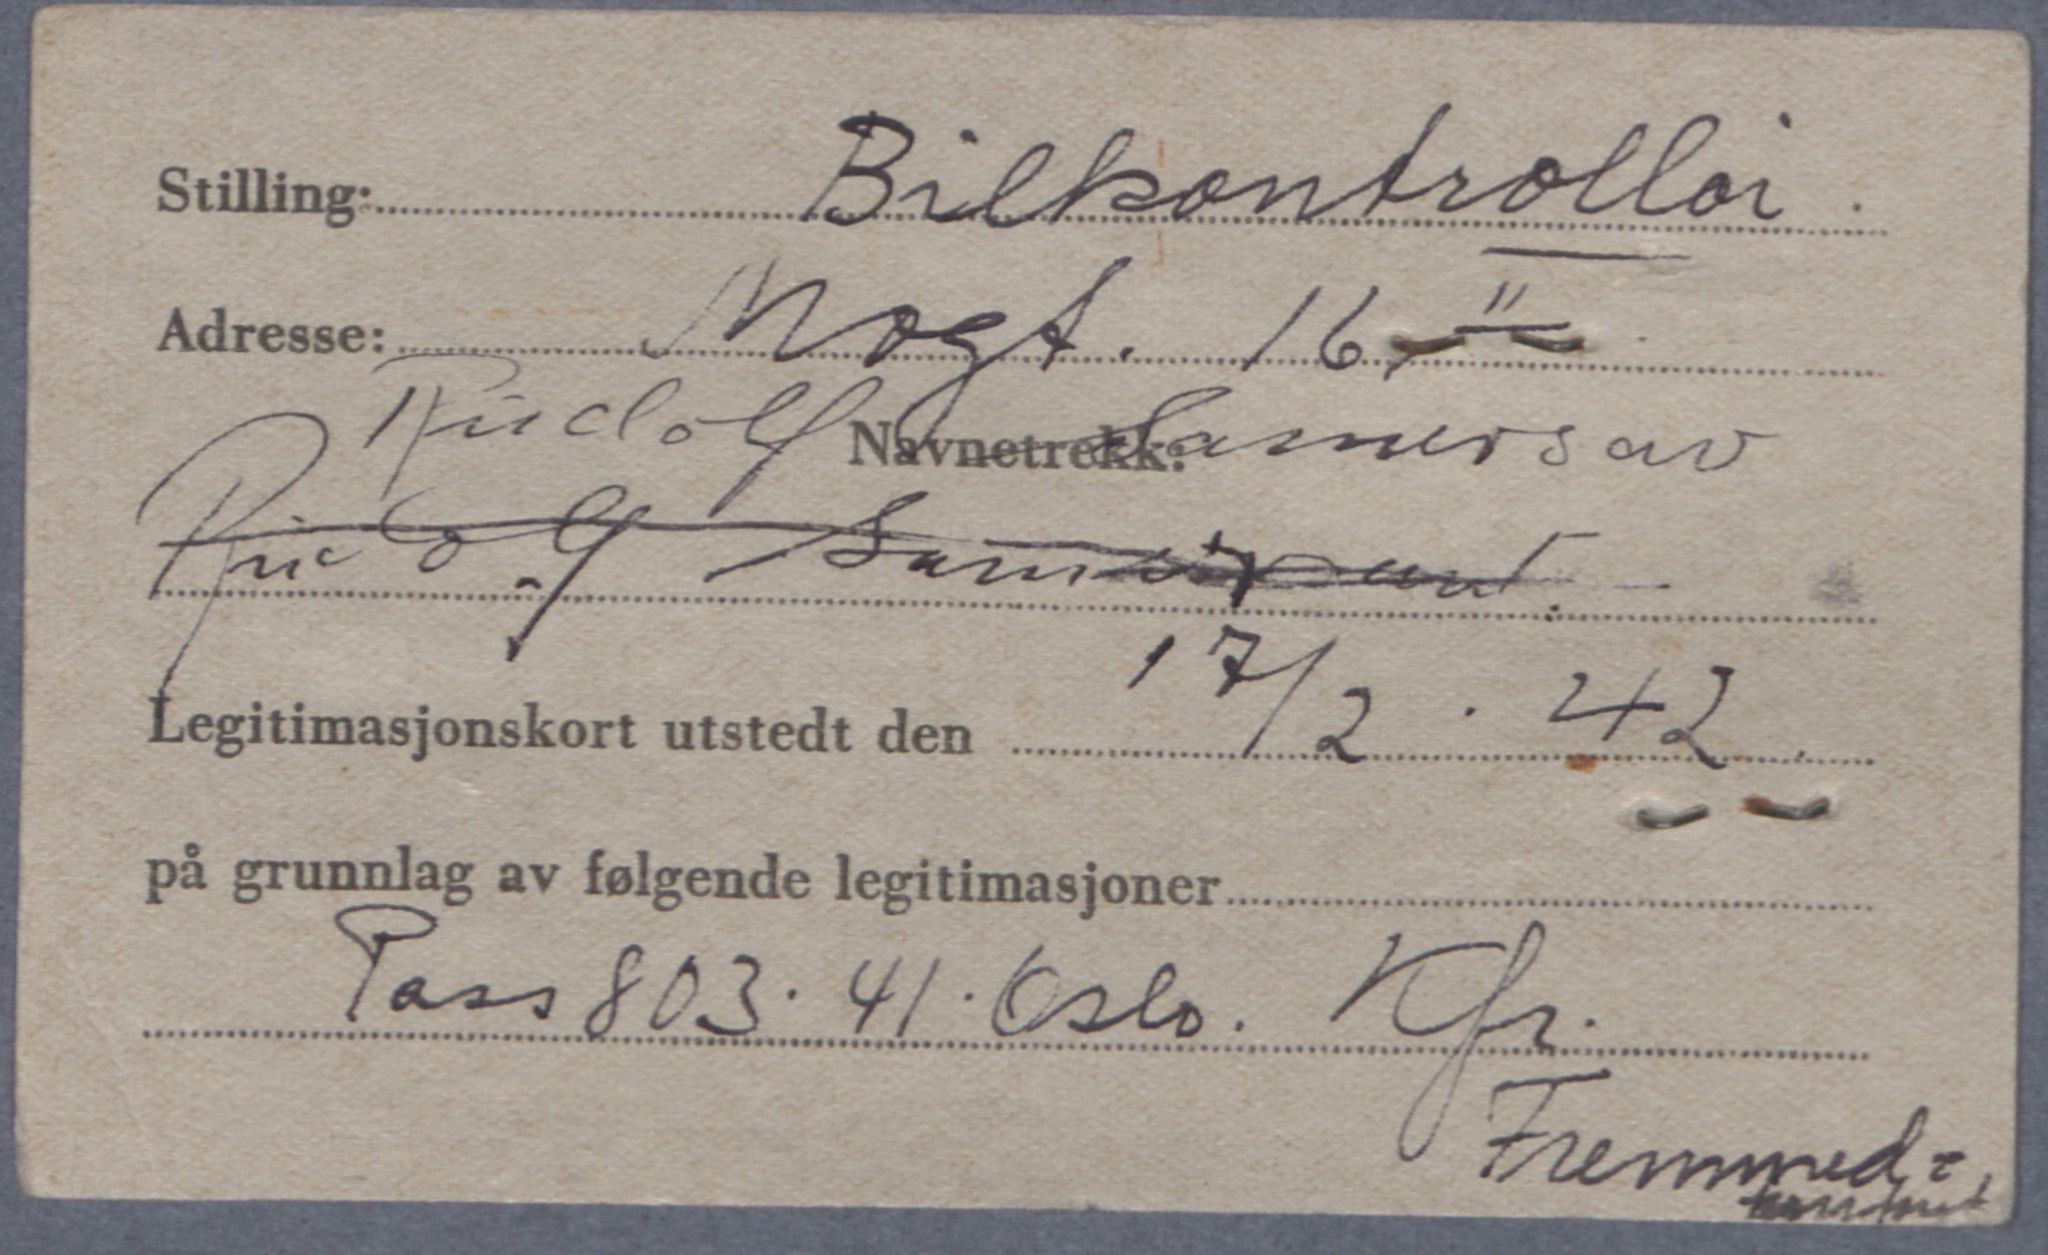 Stilling: Bilkontrollør.
Adresse: Mogt. 16, II
Rudolf
Navnetrekk:
Rudolf
Legitimasjonskort utstedt den 17/2. 42.
på grunnlag av følgende legitimasjoner
Pass 803. 41. Oslo. Kfr.
Fremmed=
kontoret